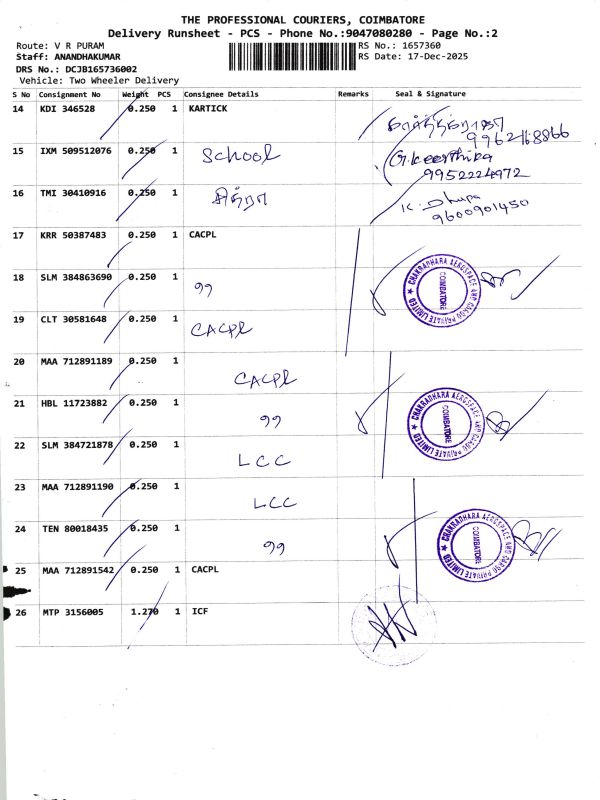 THE PROFESSIONAL COURIERS, COIMBATORE
Delivery Runsheet - PCS - Phone No.:9047080280 - Page No.:2
Route: V R PURAM RS No.: 1657360
Staff: ANANDHAKUMAR RS Date: 17-Dec-2025
DRS No.: DCJB165736002
Vehicle: Two Wheeler Delivery
S No Consignment No Weight PCS Consignee Details Remarks Seal & Signature
14 KDI 346528 0.250 1 KARTICK
9962168866
15 IXM 509512076 0.250 1 School G.Keerthika
9952224972
16 TMI 30410916 0.250 1 சித்ரா K. Dhupa
9600901450
17 KRR 50387483 0.250 1 CACPL
18 SLM 384863690 0.250 1 99
CHAKRADHARA AEROSPACE AND CARGO PRIVATE LIMITED ★
COIMBATORE
19 CLT 30581648 0.250 1 CACPL
20 MAA 712891189 0.250 1 CACPL
21 HBL 11723882 0.250 1 99
CHAKRADHARA AEROSPACE AND CARGO PRIVATE LIMITED ★
COIMBATORE
22 SLM 384721878 0.250 1 LCC
23 MAA 712891190 0.250 1 LCC
24 TEN 80018435 0.250 1 99
CHAKRADHARA AEROSPACE AND CARGO PRIVATE LIMITED ★
COIMBATORE
25 MAA 712891542 0.250 1 CACPL
26 MTP 3156005 1.270 1 ICF